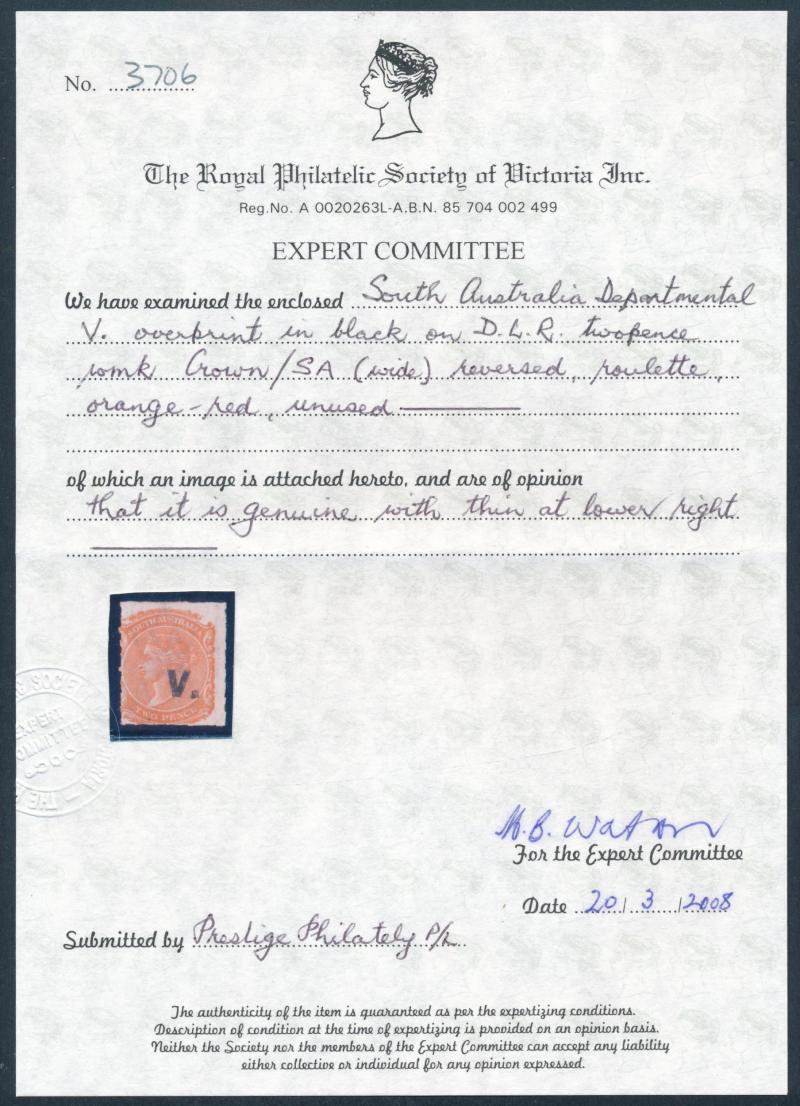 No. 3706
The Royal Philatelic Society of Victoria Inc.
Reg.No. A 0020263L-A.B.N. 85 704 002 499
EXPERT COMMITTEE
We have examined the enclosed South Australia Departmental
V. overprint in black on D.L.R. twopence
wmk Crown/SA (wide) reversed, roulette,
orange-red, unused
of which an image is attached hereto, and are of opinion
that it is genuine with thin at lower right
SOUTH AUSTRALIA
V.
TWO PENCE
EXPERT
COMMITTEE
M.B. Watson
For the Expert Committee
Date 20/3/2008
Submitted by Prestige Philately P/L
The authenticity of the item is guaranteed as per the expertizing conditions.
Description of condition at the time of expertizing is provided on an opinion basis.
Neither the Society nor the members of the Expert Committee can accept any liability
either collective or individual for any opinion expressed.